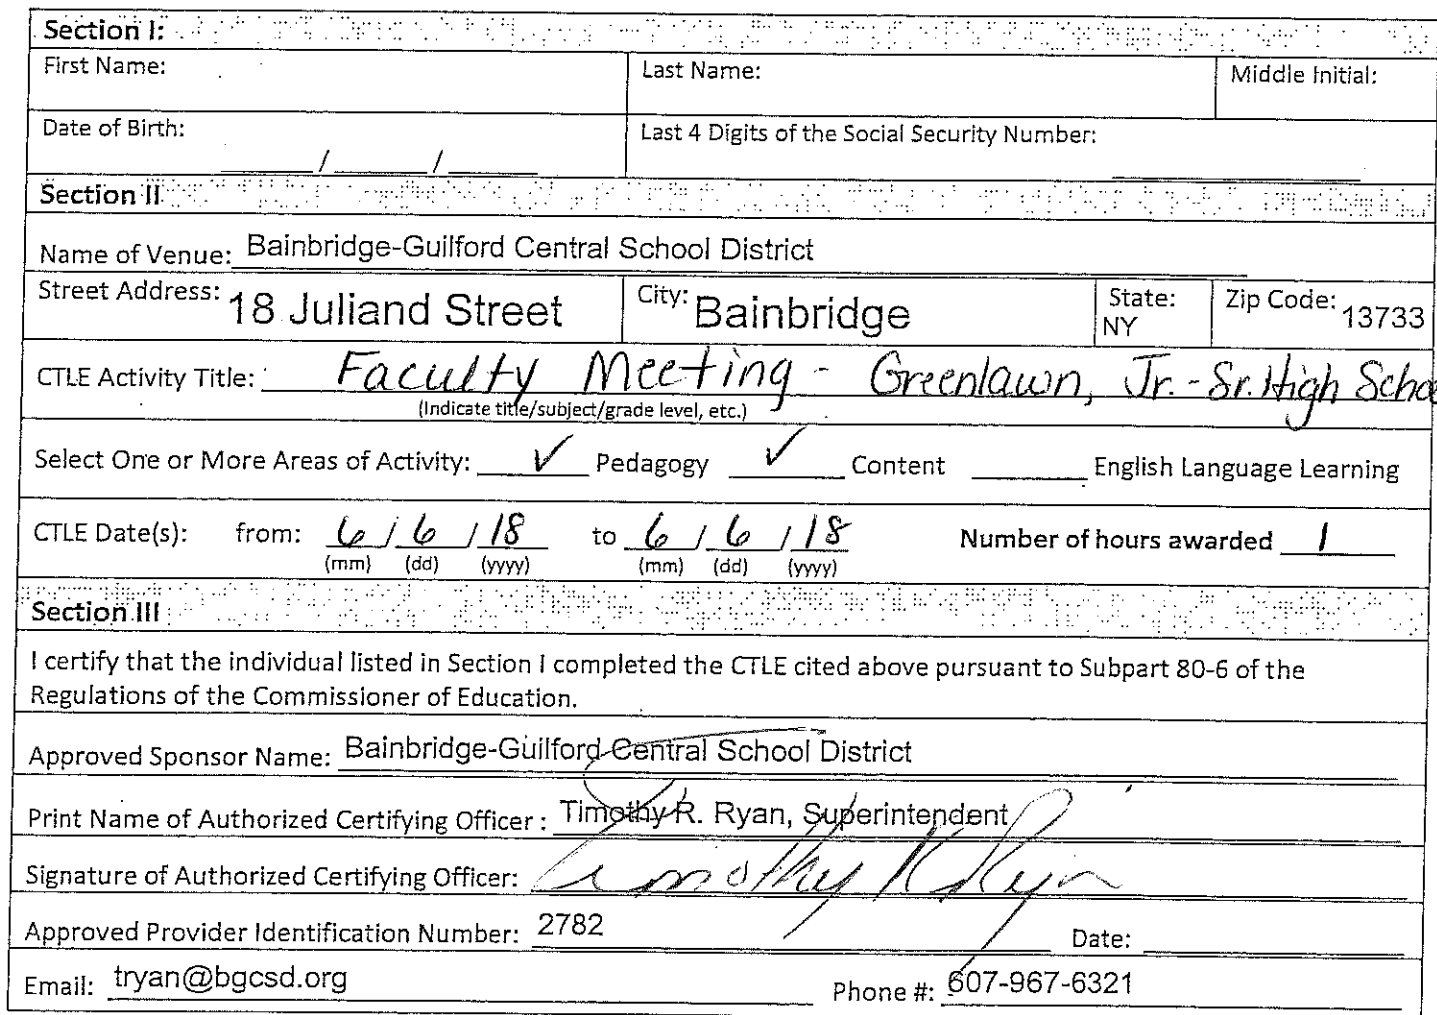 Section I:
First Name: Last Name: Middle Initial:
Date of Birth: Last 4 Digits of the Social Security Number:
____/____/____
Section II
Name of Venue: Bainbridge-Guilford Central School District
Street Address: 18 Juliand Street City: Bainbridge State: NY Zip Code: 13733
CTLE Activity Title: Faculty Meeting - Greenlawn, Jr.-Sr. High Scho
(Indicate title/subject/grade level, etc.)
Select One or More Areas of Activity: ✓ Pedagogy ✓ Content ____ English Language Learning
CTLE Date(s): from: 6/6/18 to 6/6/18 Number of hours awarded 1
(mm) (dd) (yyyy) (mm) (dd) (yyyy)
Section III
I certify that the individual listed in Section I completed the CTLE cited above pursuant to Subpart 80-6 of the
Regulations of the Commissioner of Education.
Approved Sponsor Name: Bainbridge-Guilford Central School District
Print Name of Authorized Certifying Officer : Timothy R. Ryan, Superintendent
Signature of Authorized Certifying Officer: Timothy R Ryan
Approved Provider Identification Number: 2782 Date:
Email: tryan@bgcsd.org Phone #: 607-967-6321